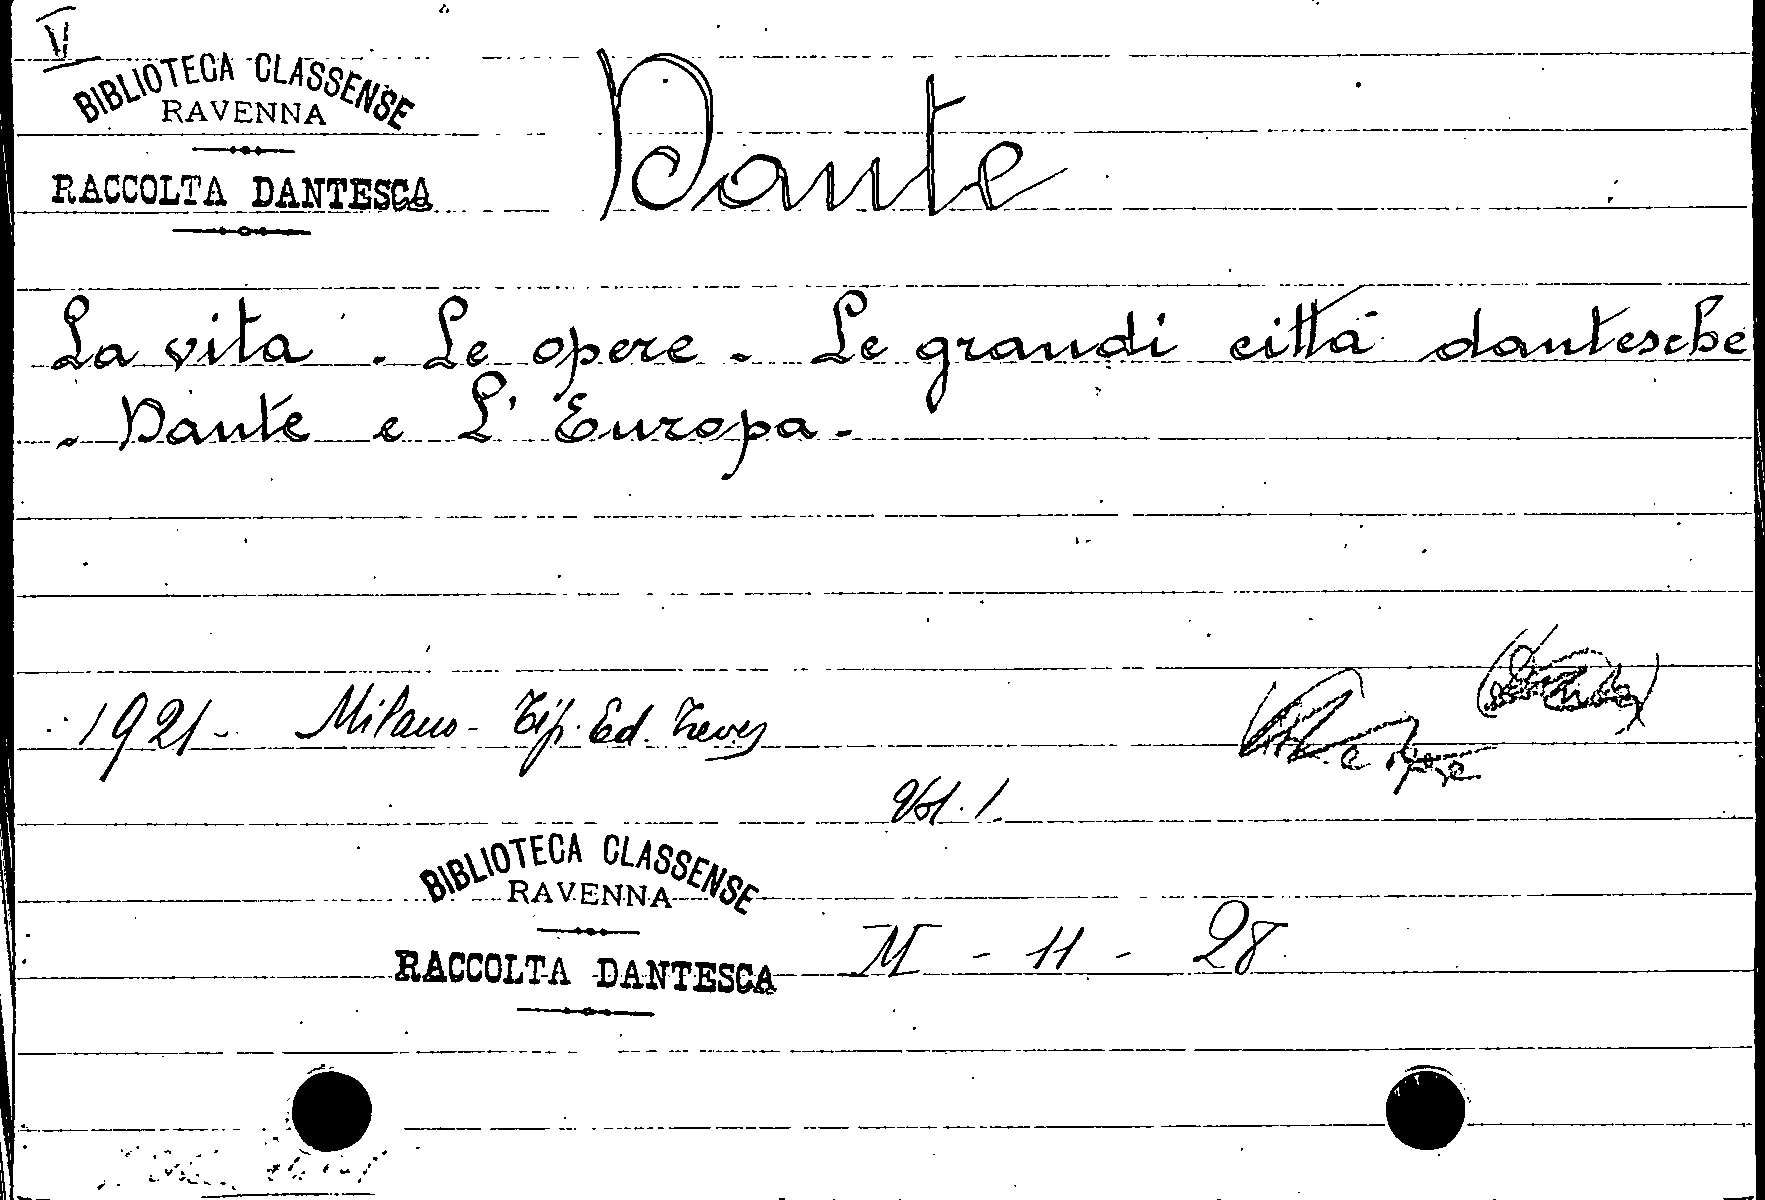 V
BIBLIOTECA CLASSENSE
RAVENNA
RACCOLTA DANTESCA
Dante
La vita . Le opere . Le grandi città dantesche
. Dante e L' Europa .
1921 - Milano - Tip. Ed. Treves
Vol. 1.
BIBLIOTECA CLASSENSE
RAVENNA
RACCOLTA DANTESCA
M - 11 - 28